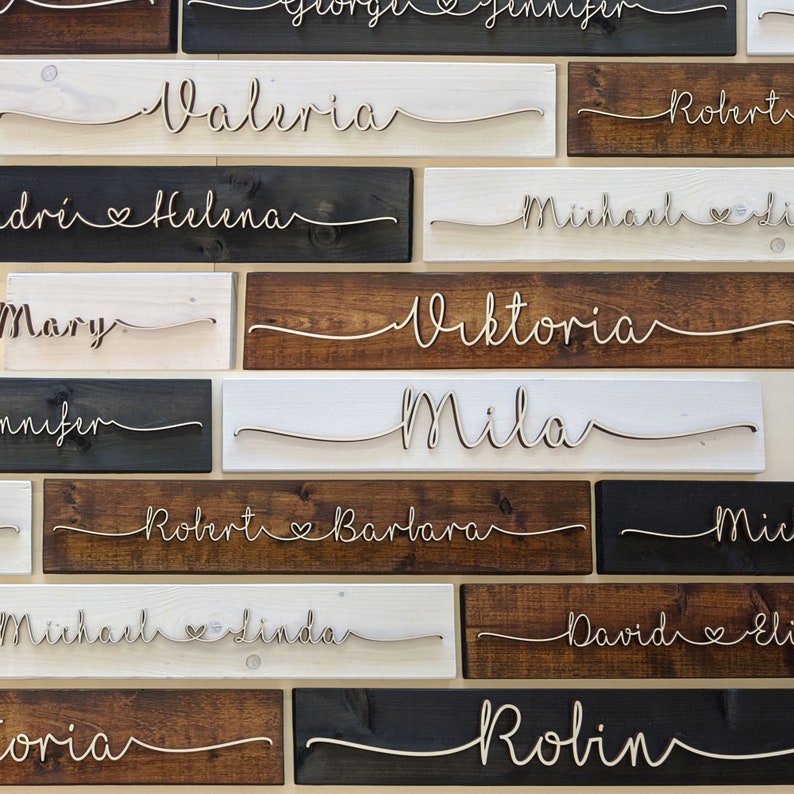 George ♡ Jennifer
Valeria
Robert
dré ♡ Helena
Michael ♡ Li
Mary
Viktoria
nnifer
Mila
Robert ♡ Barbara
Mic
Michael ♡ Linda
David ♡ Eli
toria
Robin